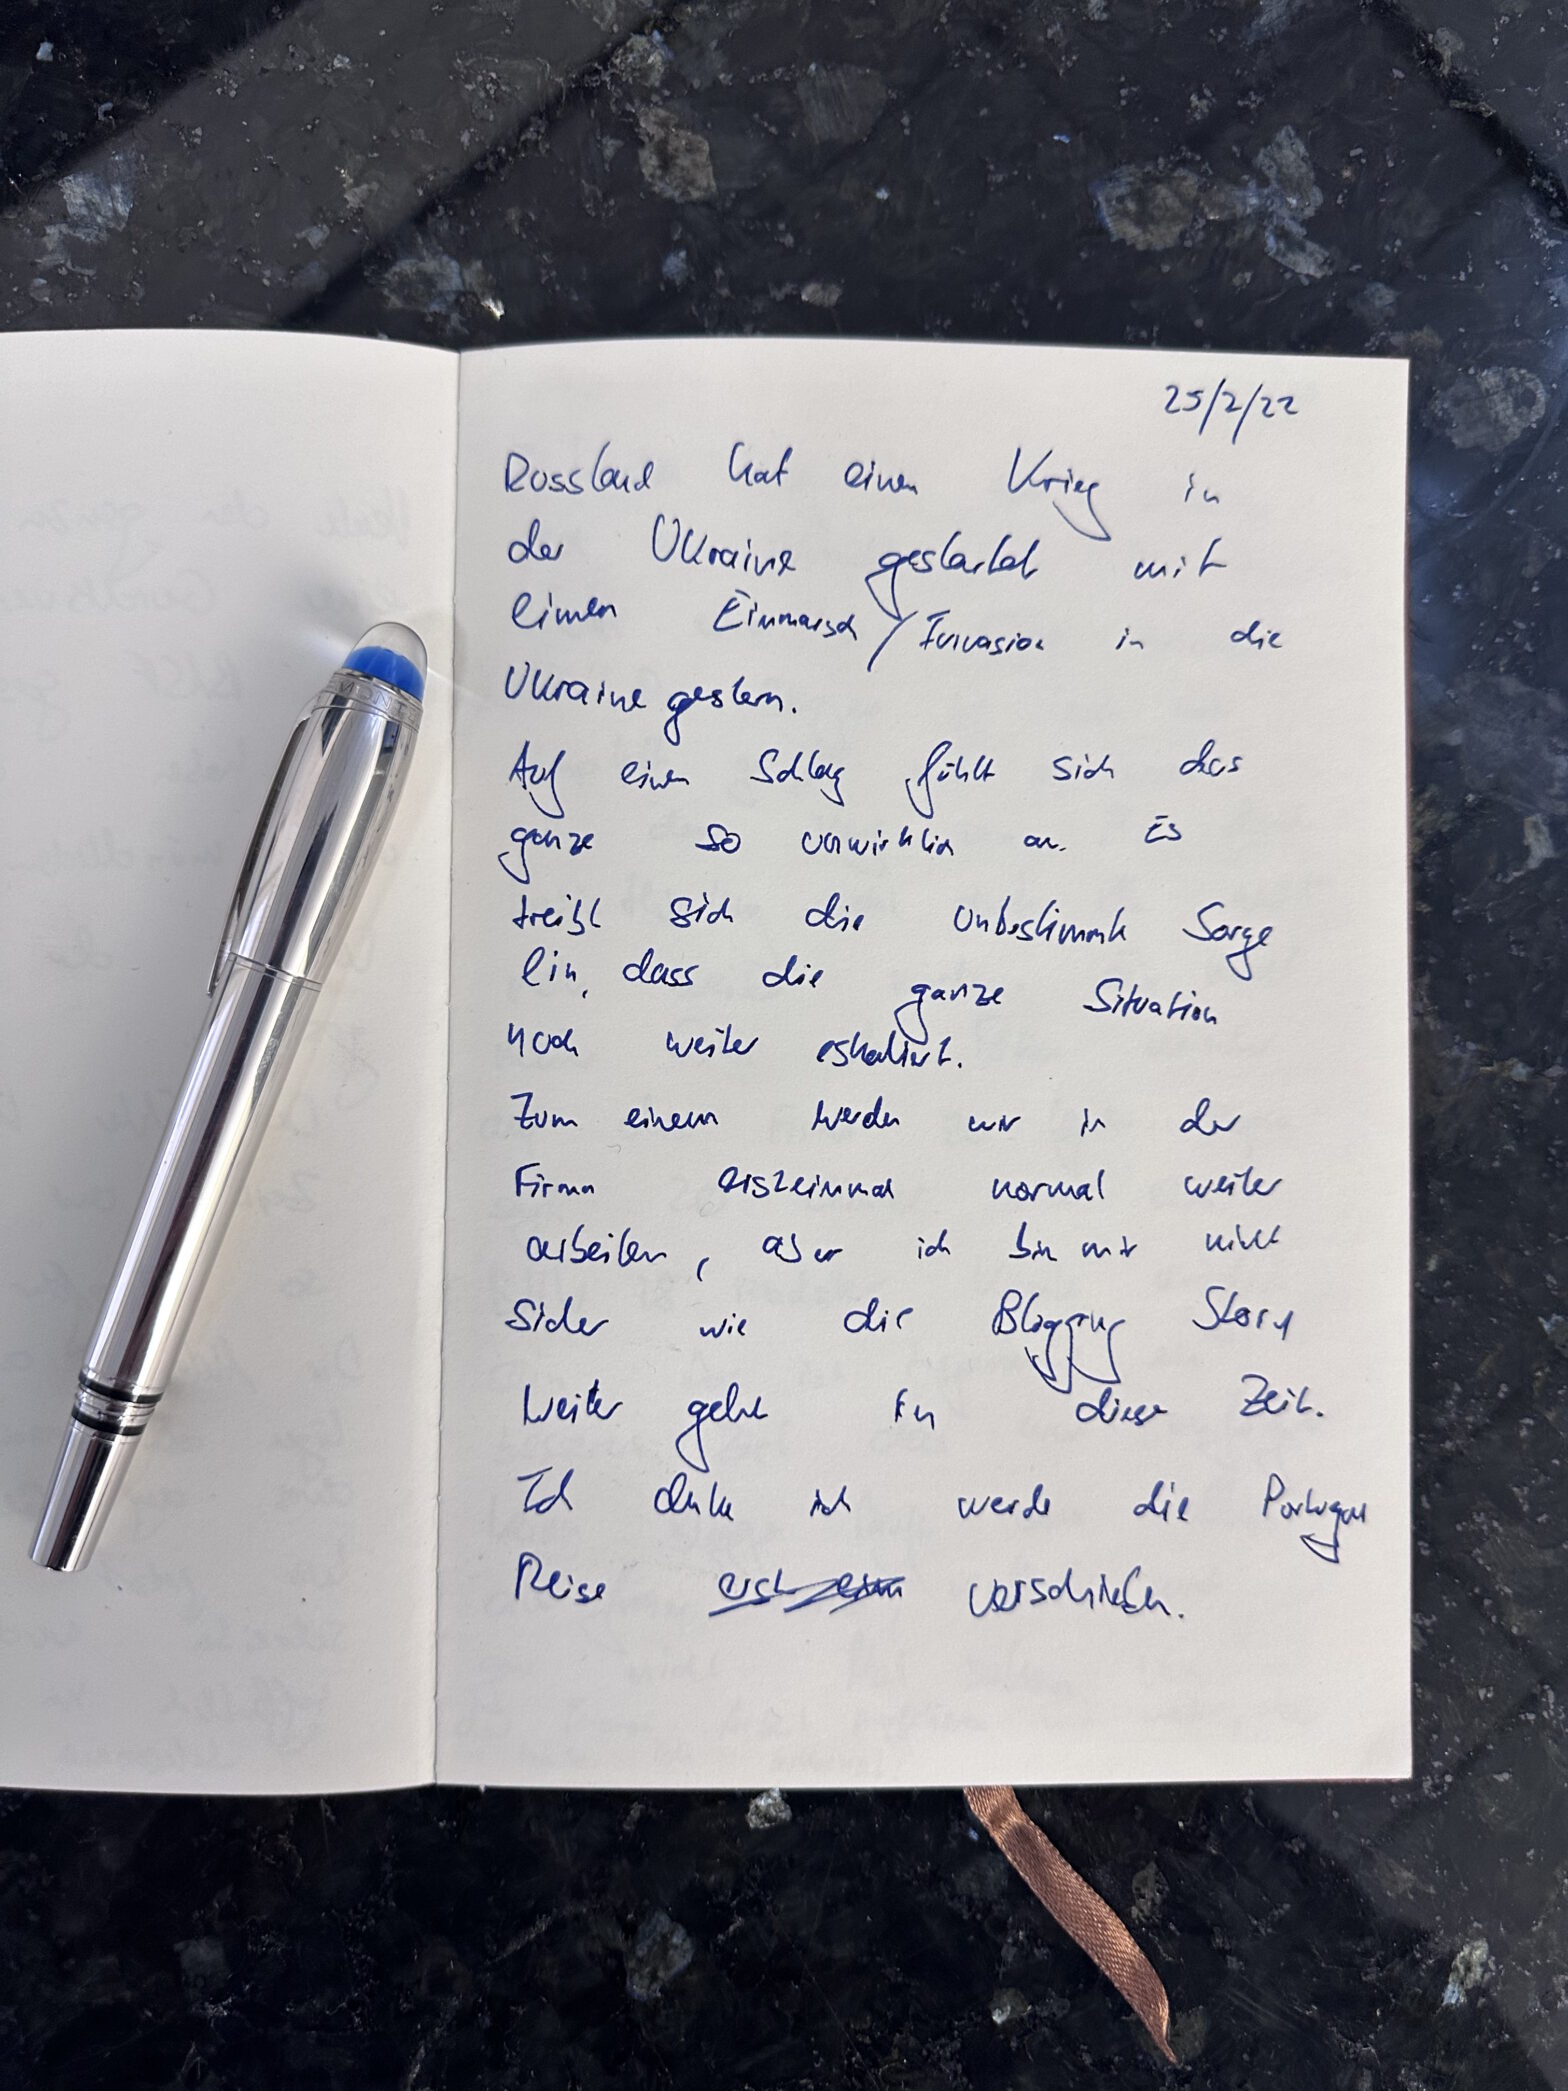 25/2/22
Russland hat einen Krieg in
der Ukraine gestartet mit
einen Einmarsch/Invasion in die
Ukraine gestern.
Auf einen Schlag fühlt sich das
ganze so unwirklich an. Es
treibt sich die unbestimmte Sorge
ein, dass die ganze Situation
noch weiter eskaliert.
Zum einem werden wir in der
Firma erstzeinmal normal weiter
arbeiten, aber ich bin mir nicht
sicher wie die Blogging Story
weiter gehe in dieser Zeit.
Ich denke ich werde die Portugal
Reise verschieben.
MONT